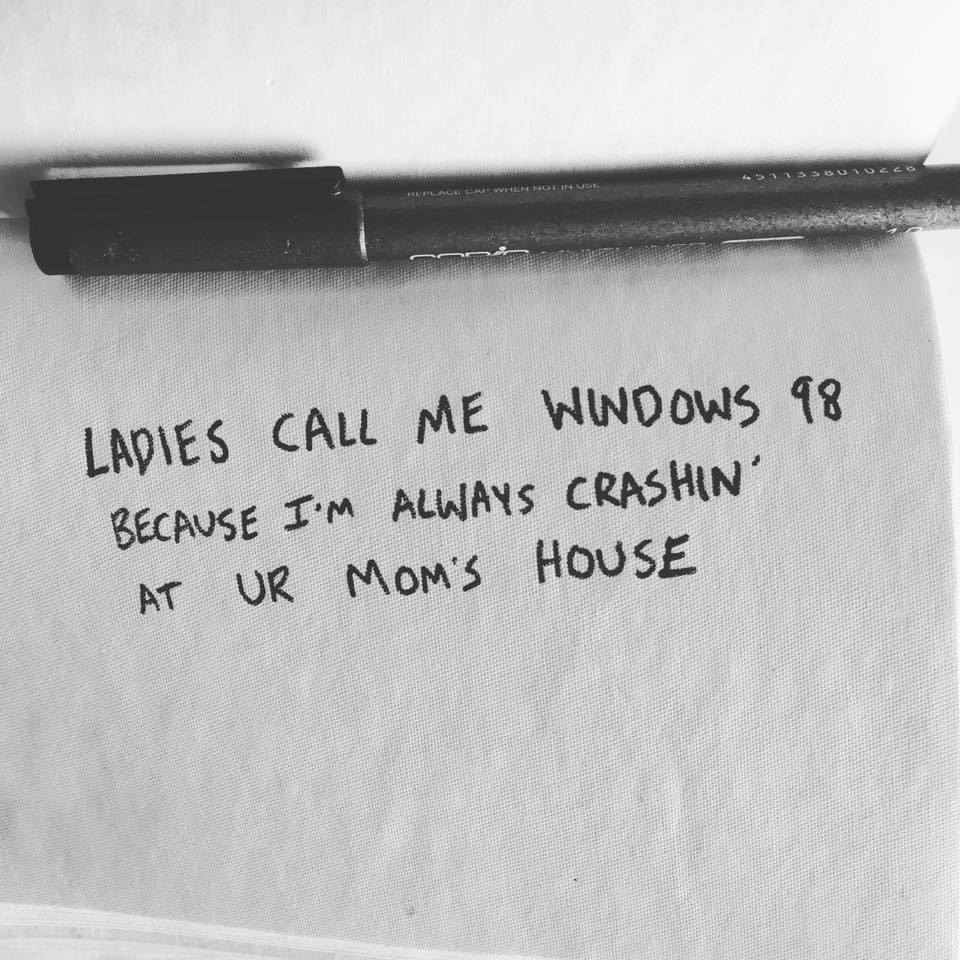 REPLACE CAP WHEN NOT IN USE
4511338010228
LADIES CALL ME WINDOWS 98
BECAUSE I'M ALWAYS CRASHIN'
AT UR MOM'S HOUSE